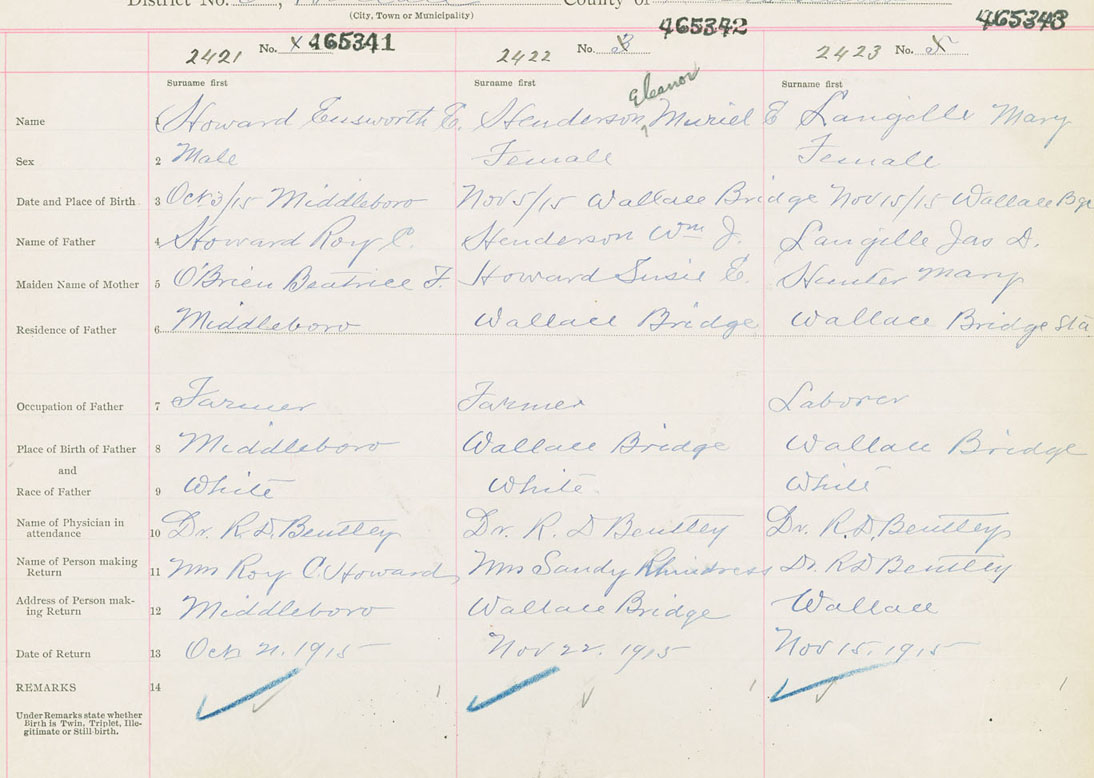 District No. County of
(City, Town or Municipality)
2421 No. X 465341 2422 No. 465342 2423 No. 465343
Surname first Surname first Surname first
Name 1 Howard Ensworth E. Henderson, Eleanor Muriel E Langille Mary
Sex 2 Male Female Female
Date and Place of Birth 3 Oct 3/15 Middleboro Nov 5/15 Wallace Bridge Nov 15/15 Wallace Bge
Name of Father 4 Howard Roy C. Henderson Wm J. Langille Jas D.
Maiden Name of Mother 5 O'Brien Beatrice F. Howard Susie E. Hunter Mary
Residence of Father 6 Middleboro Wallace Bridge Wallace Bridge Sta
Occupation of Father 7 Farmer Farmer Laborer
Place of Birth of Father 8 Middleboro Wallace Bridge Wallace Bridge
and
Race of Father 9 White White. White
Name of Physician in
attendance 10 Dr. R. D. Bentley Dr. R. D Bentley Dr. R. D. Bentley
Name of Person making
Return 11 Mrs Roy C. Howard Mrs Sandy Rhindress Dr. R D Bentley
Address of Person mak-
ing Return 12 Middleboro Wallace Bridge Wallace
Date of Return 13 Oct. 21. 1915 Nov 22. 1915 Nov 15. 1915
REMARKS 14
Under Remarks state whether
Birth is Twin, Triplet, Ille-
gitimate or Still-birth.